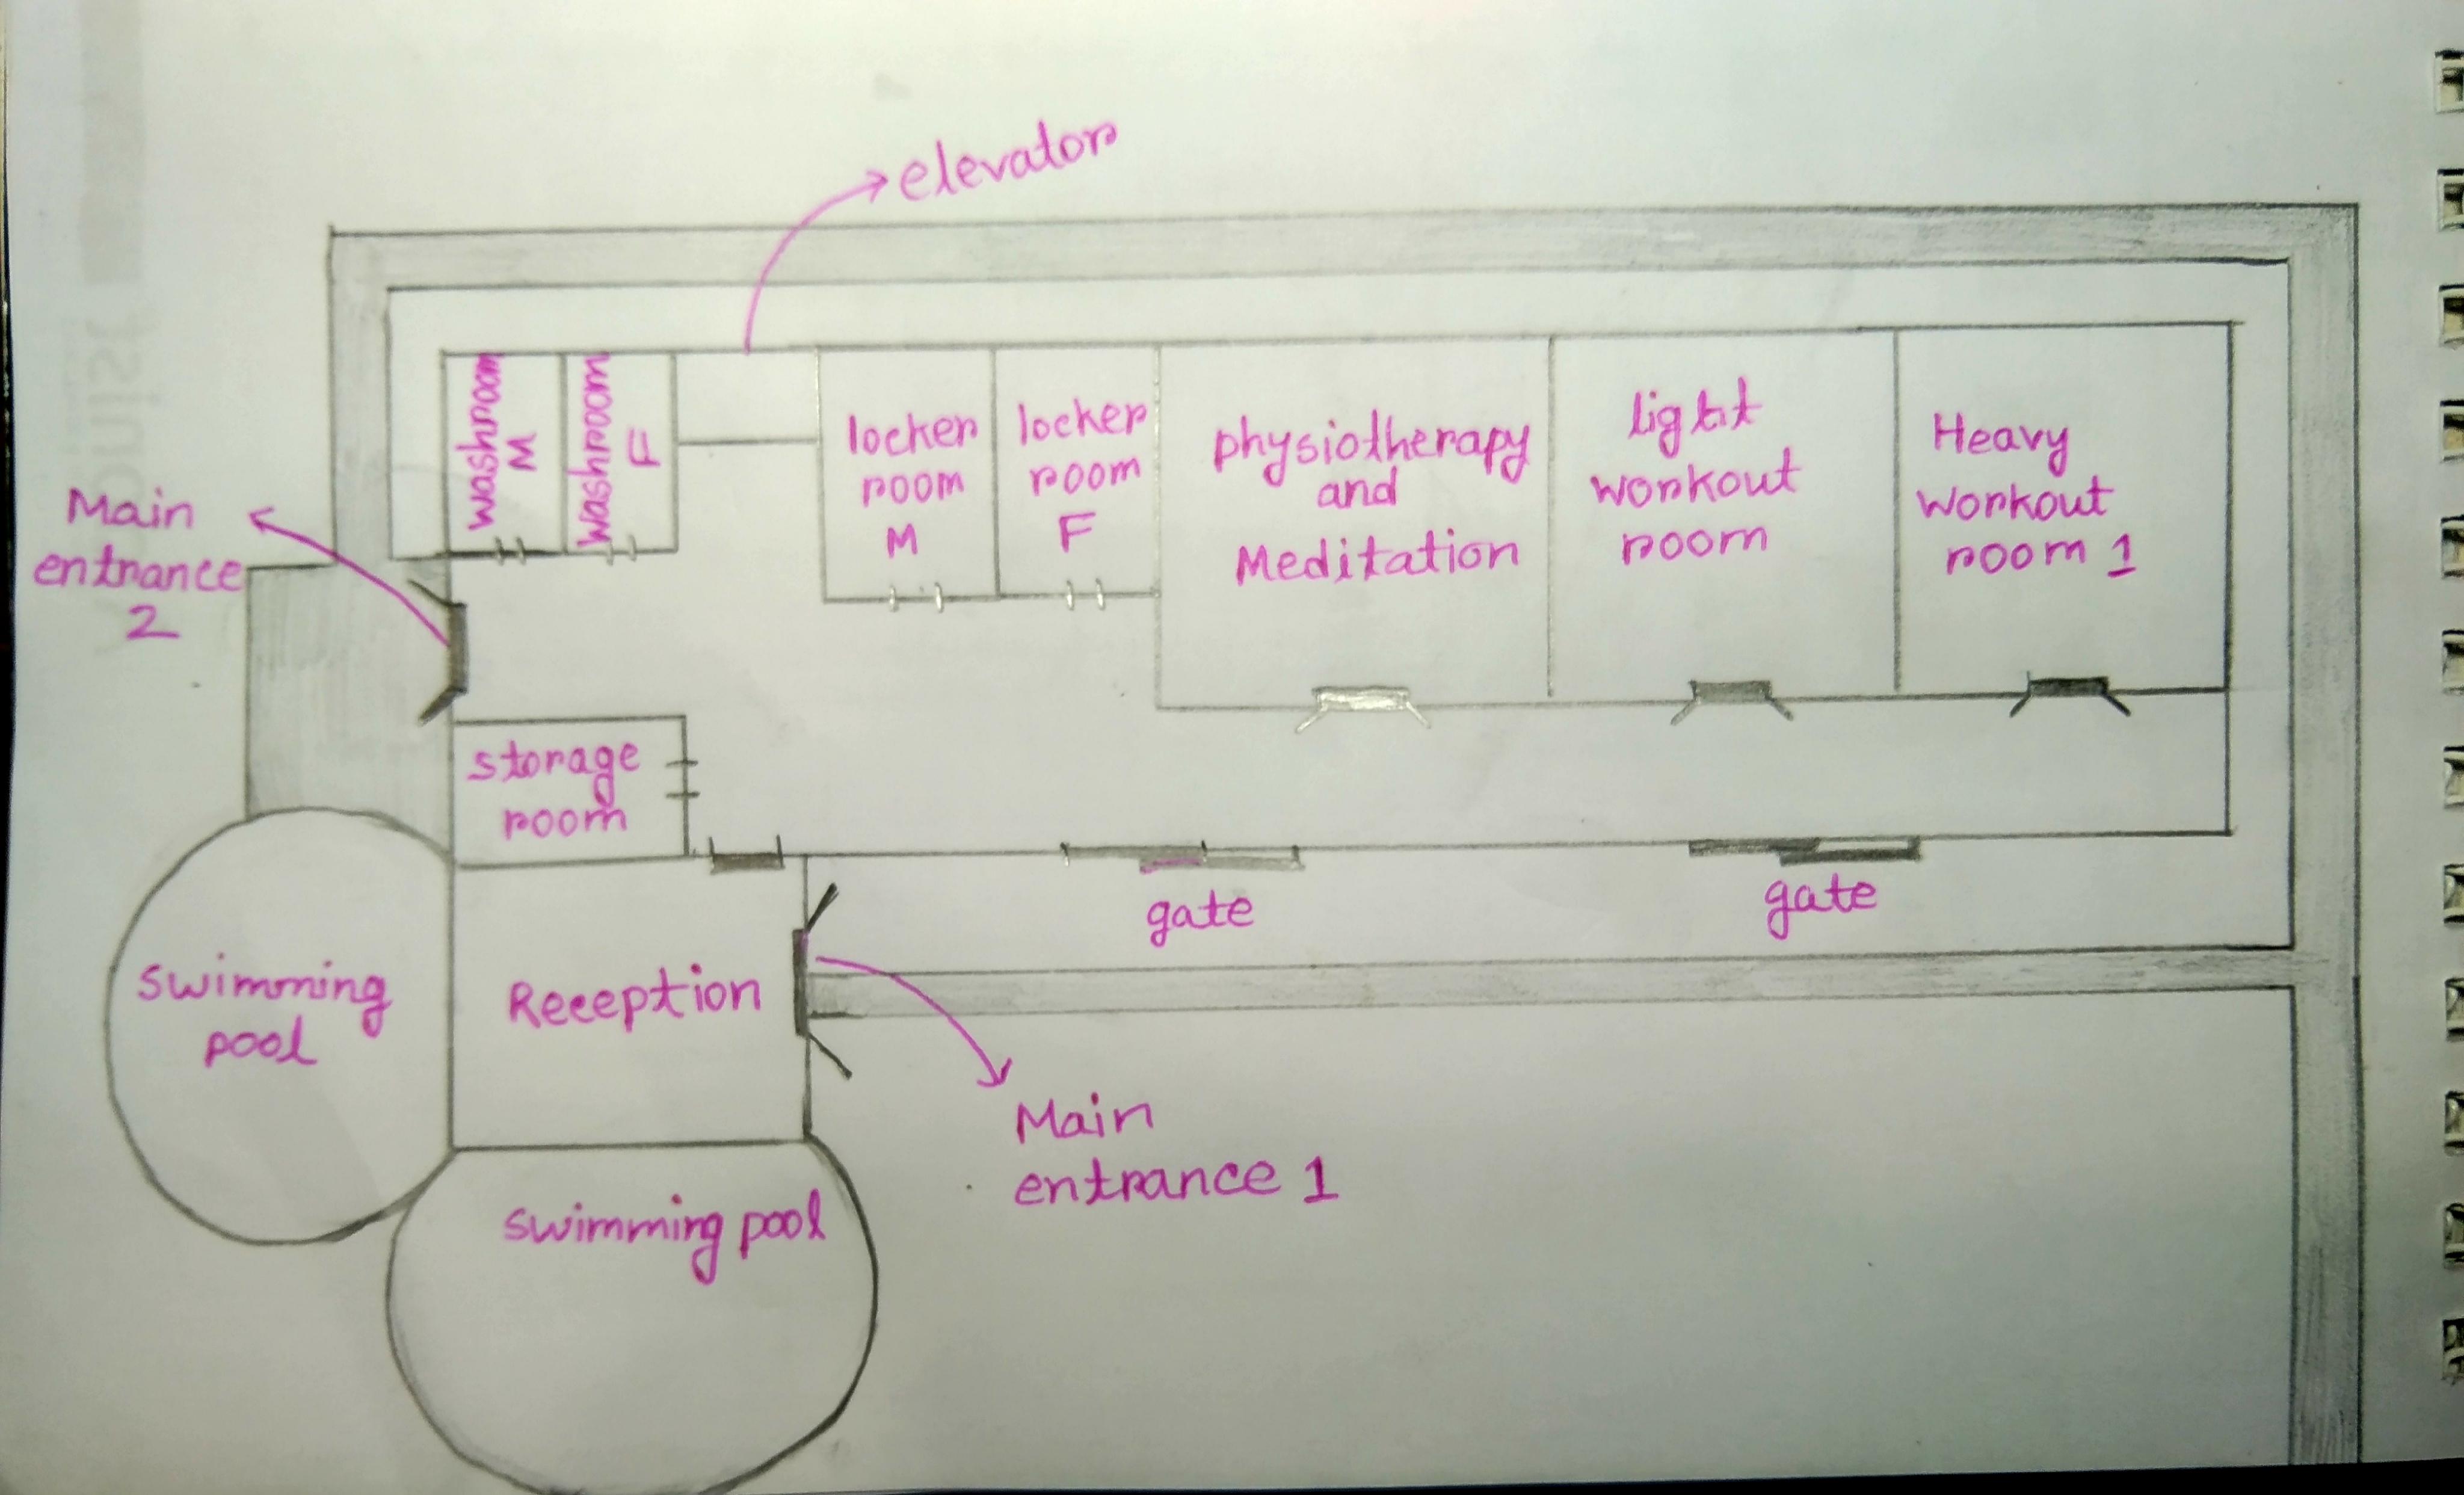 elevator
Main
entrance
2
washroom
M
washroom
F
locker
room
M
locker
room
F
physiotherapy
and
Meditation
light
workout
room
Heavy
workout
room 1
storage
room
gate
gate
swimming
pool
Reception
Main
entrance 1
swimming pool